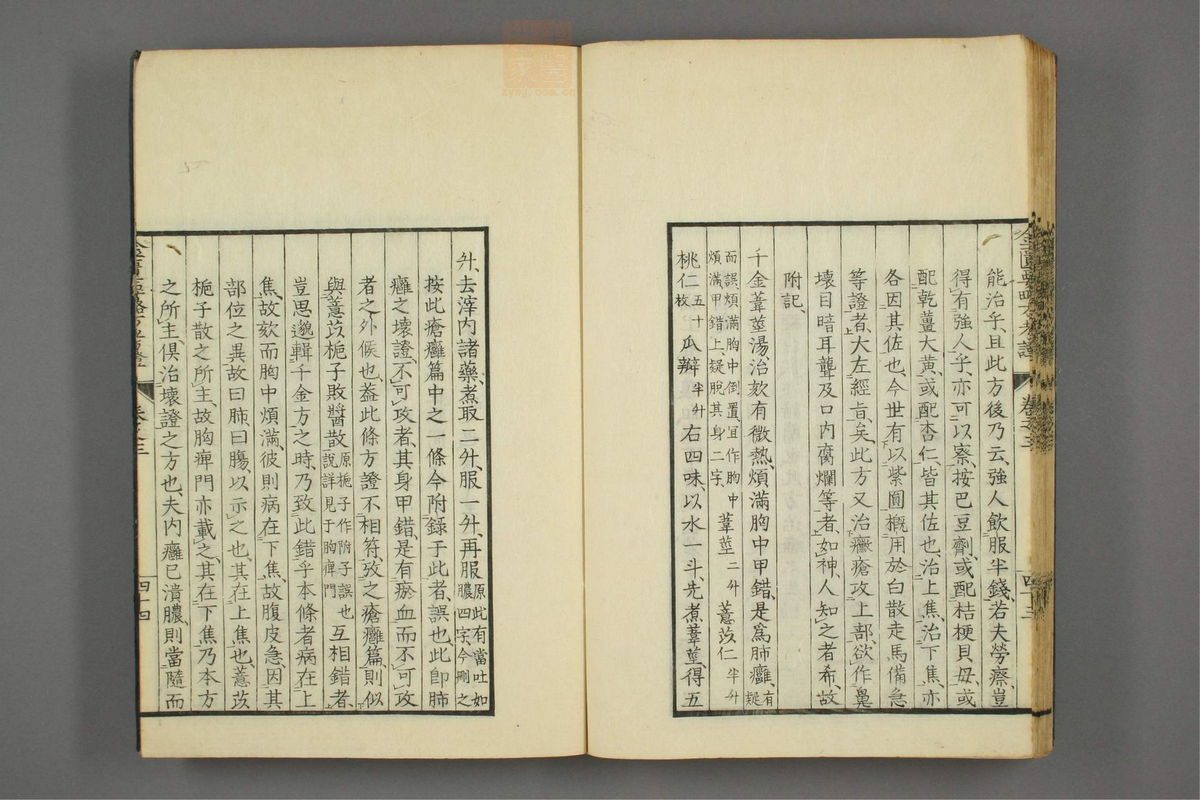 能治乎、且此方後乃云、強人飲服半錢、若夫勞瘵豈
得有強人乎、亦可以察、按巴豆劑、或配桔梗貝毋、或
配乾薑大黄、或配杏仁、皆其佐也、治上焦、治下焦、亦
各因其佐也、今世有以紫圓概用於白散走馬備急
等證者、大左經旨矣、此方又治癩瘡攻上部、欲作鼻
壞目暗耳聾及口内腐爛等者、如神、人知之者希、故
附記、
千金葦莖湯治欬有微熱、煩滿胸中甲錯、是爲肺癰、有疑
而誤煩滿胸中倒置、宜作胸中
煩滿、甲錯上、疑脫其身二字、葦莖二升 薏苡仁半升
桃仁五十枚 瓜瓣半升 右四味、以水一斗、先煮葦莖、得五
升、去滓、内諸藥、煮取二升、服一升、再服原此有當吐如膿四字、今刪之
按此瘡癰篇中之一條、今附錄于此者、誤也、此卽肺
癰之壞證、不可攻者、其身甲錯、是有瘀血而不可攻
者之外候也、葢此條方證不相符、攷之瘡癰篇、則似
與薏苡梔子敗醬散原梔子作附子誤也說詳見于胸痺門互相錯者、
豈思邈輯千金方之時、乃致此錯乎、本條者病在上
焦、故欬而胸中煩滿、彼則病在下焦、故腹皮急、因其
部位之異、故曰肺、曰腸、以示之也、其在上焦也、薏苡
梔子散之所主、故胸痺門亦載之、其在下焦、乃本方
之所主、俱治壞證之方也、夫内癰已潰膿、則當隨而
卷之三
四十四